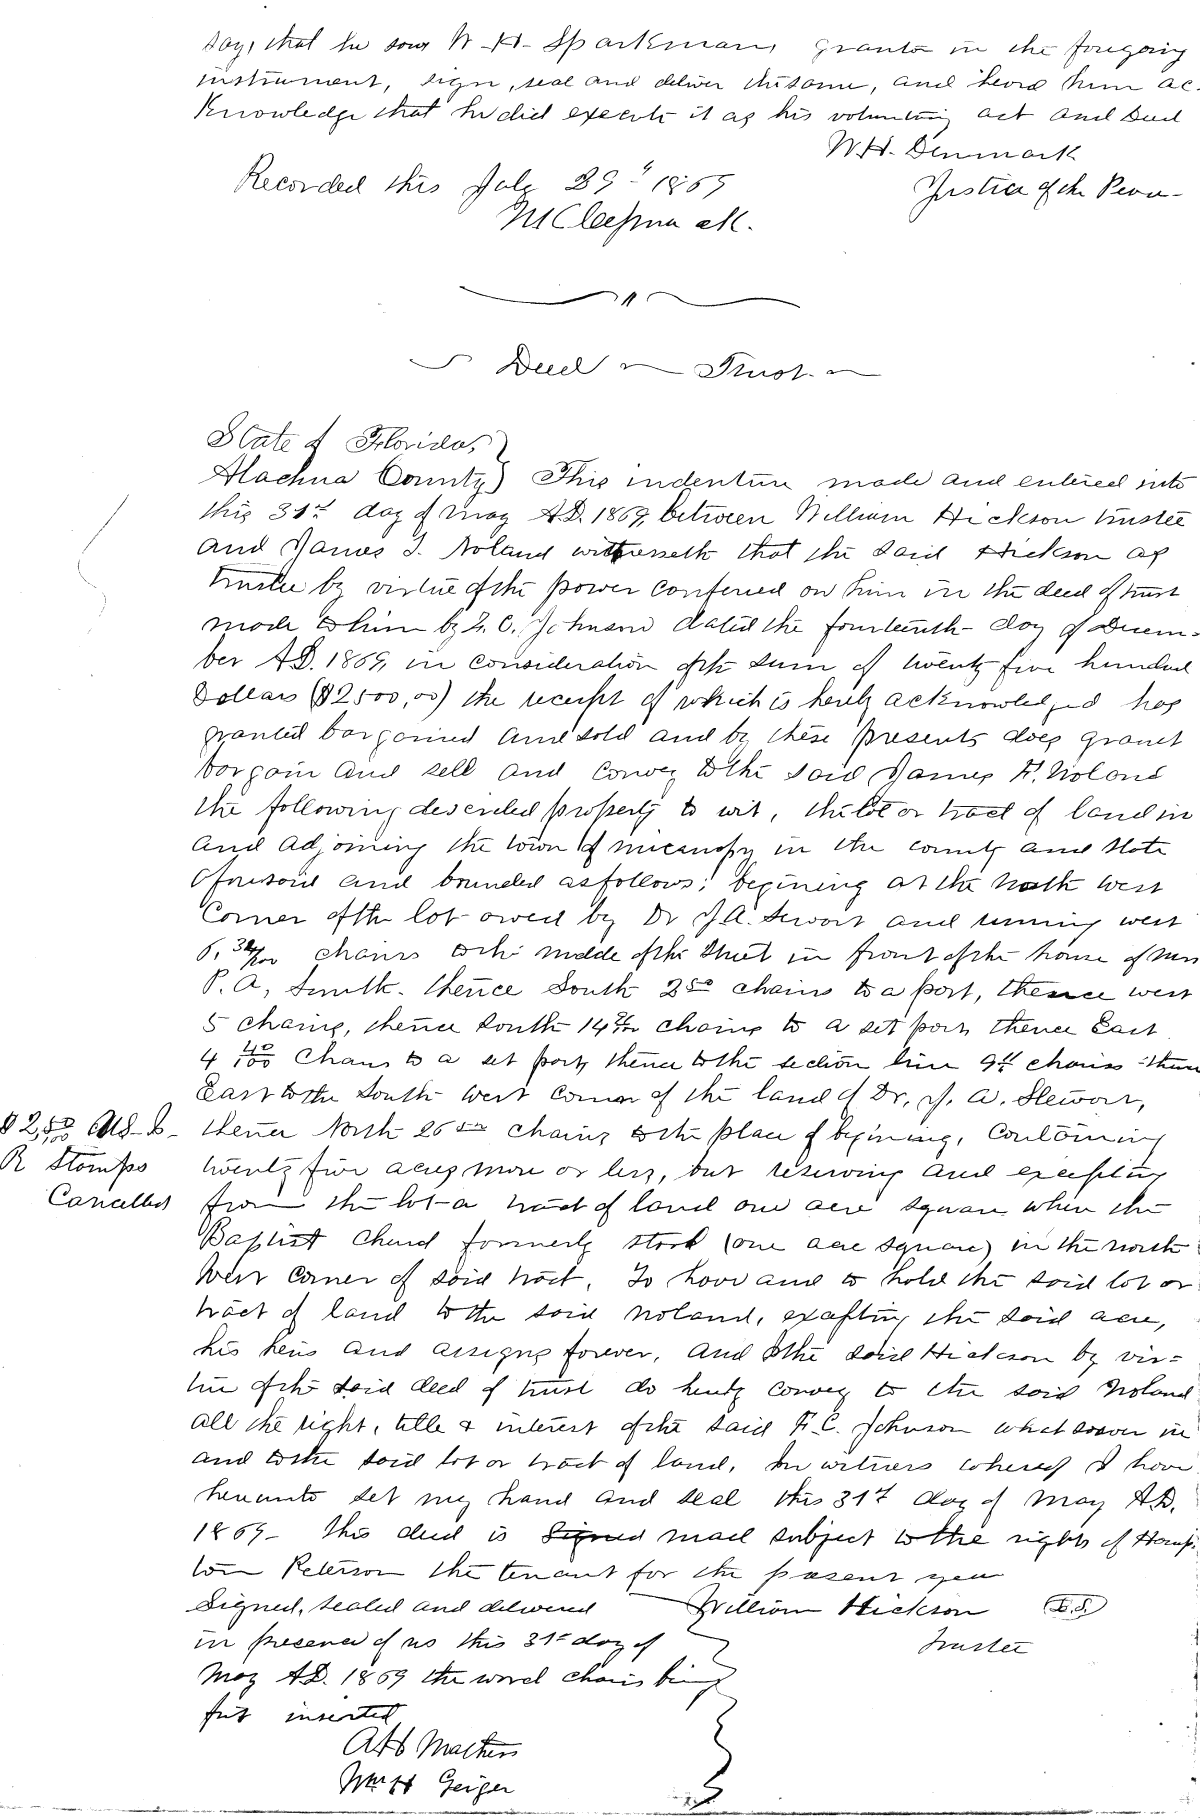 say, that he saw W. H. Sparkman, grantor in the foregoing
instrument, sign, seal and deliver the same, and heard him ac-
knowledge that he did execute it as his voluntary act and Deed
W. H. Denmark
Recorded this July 29" 1869
Justice of the Peace
Clk.
Deed Trust
State of Florida,
Alachua County) This indenture made and entered into
this 31st day of May A.D. 1869, between William Hickson trustee
and James F. Noland witnesseth that the said Hickson as
trustee by virtue of the power conferred on him in the deed of trust
made to him by F. C. Johnson dated the fourteenth day of Decem-
ber A.D. 1869, in consideration of the sum of twenty five hundred
Dollars ($2500,00) the receipt of which is hereby acknowledged has
granted bargained and sold and by these presents does grant
bargain and sell and convey to the said James F. Noland
the following described property to wit, the lot or tract of land in
and adjoining the town of Micanopy in the county and State
aforesaid and bounded as follows; begining at the North West
Corner of the lot owed by Dr J. A. Stewart and running west
6, 38/100 chains to the middle of the Street in front of the house of Mrs
P. A, Smith. thence South 2 50 chains to a post, thence west
5 chains, thence South 14 chains to a set post, thence East
4 40/100 Chains to a set post, thence to the section line 9 chains thence
East to the South West corner of the land of Dr. J. A. Stewart,
$2,50 U S I
thence North 26 50 chains to the place of begining, Containing
R Stamps
twenty five acres more or less, but reserving and excepting
Cancelled
from the lot a tract of land one acre square where the
Baptist Church formerly stood (one acre square) in the North
West Corner of said tract. To have and to hold the said lot or
tract of land to the said Noland, excepting the said acre,
his heirs and assigns forever. And the said Hickson by vir=
tue of the said deed of trust do hereby convey to the said Noland
all the right, title & interest of the said F. C. Johnson whatsoever in
and to the said lot or tract of land. In witness whereof I have
hereunto set my hand and seal this 31st day of May A.D.
1869- This deed is Signed made subject to the rights of Hamp
ton Peterson the tenant for the present year
Signed, sealed and delivered William Hickson L.S.
in presence of us this 31st day of Trustee
May A.D. 1869 the word chains being
first inserted
Mathers
Wm H Geiger